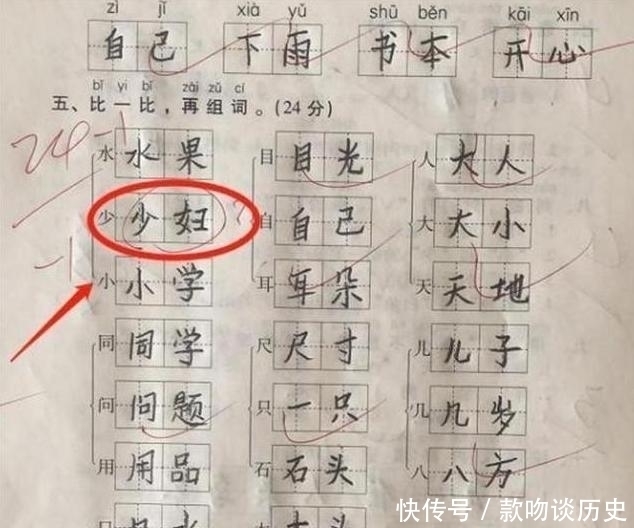 zì jǐ xià yǔ shū běn kāi xīn
自己 下雨 书本 开心
bǐ yi bǐ zài zǔ cí
五、比一比，再组词。(24分)
24-1
水 水果 目 目光 人 大人
少 少妇 自 自己 大 大小
-1
小 小学 耳 耳朵 天 天地
同 同学 尺 尺寸 儿 儿子
问 问题 只 一只 几 几岁
用 用品 石 石头 八 八方
快传号 / 款吻谈历史